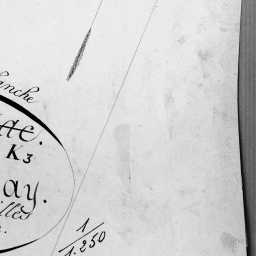 anche
ae.
K3
ay.
illes
1/1.250